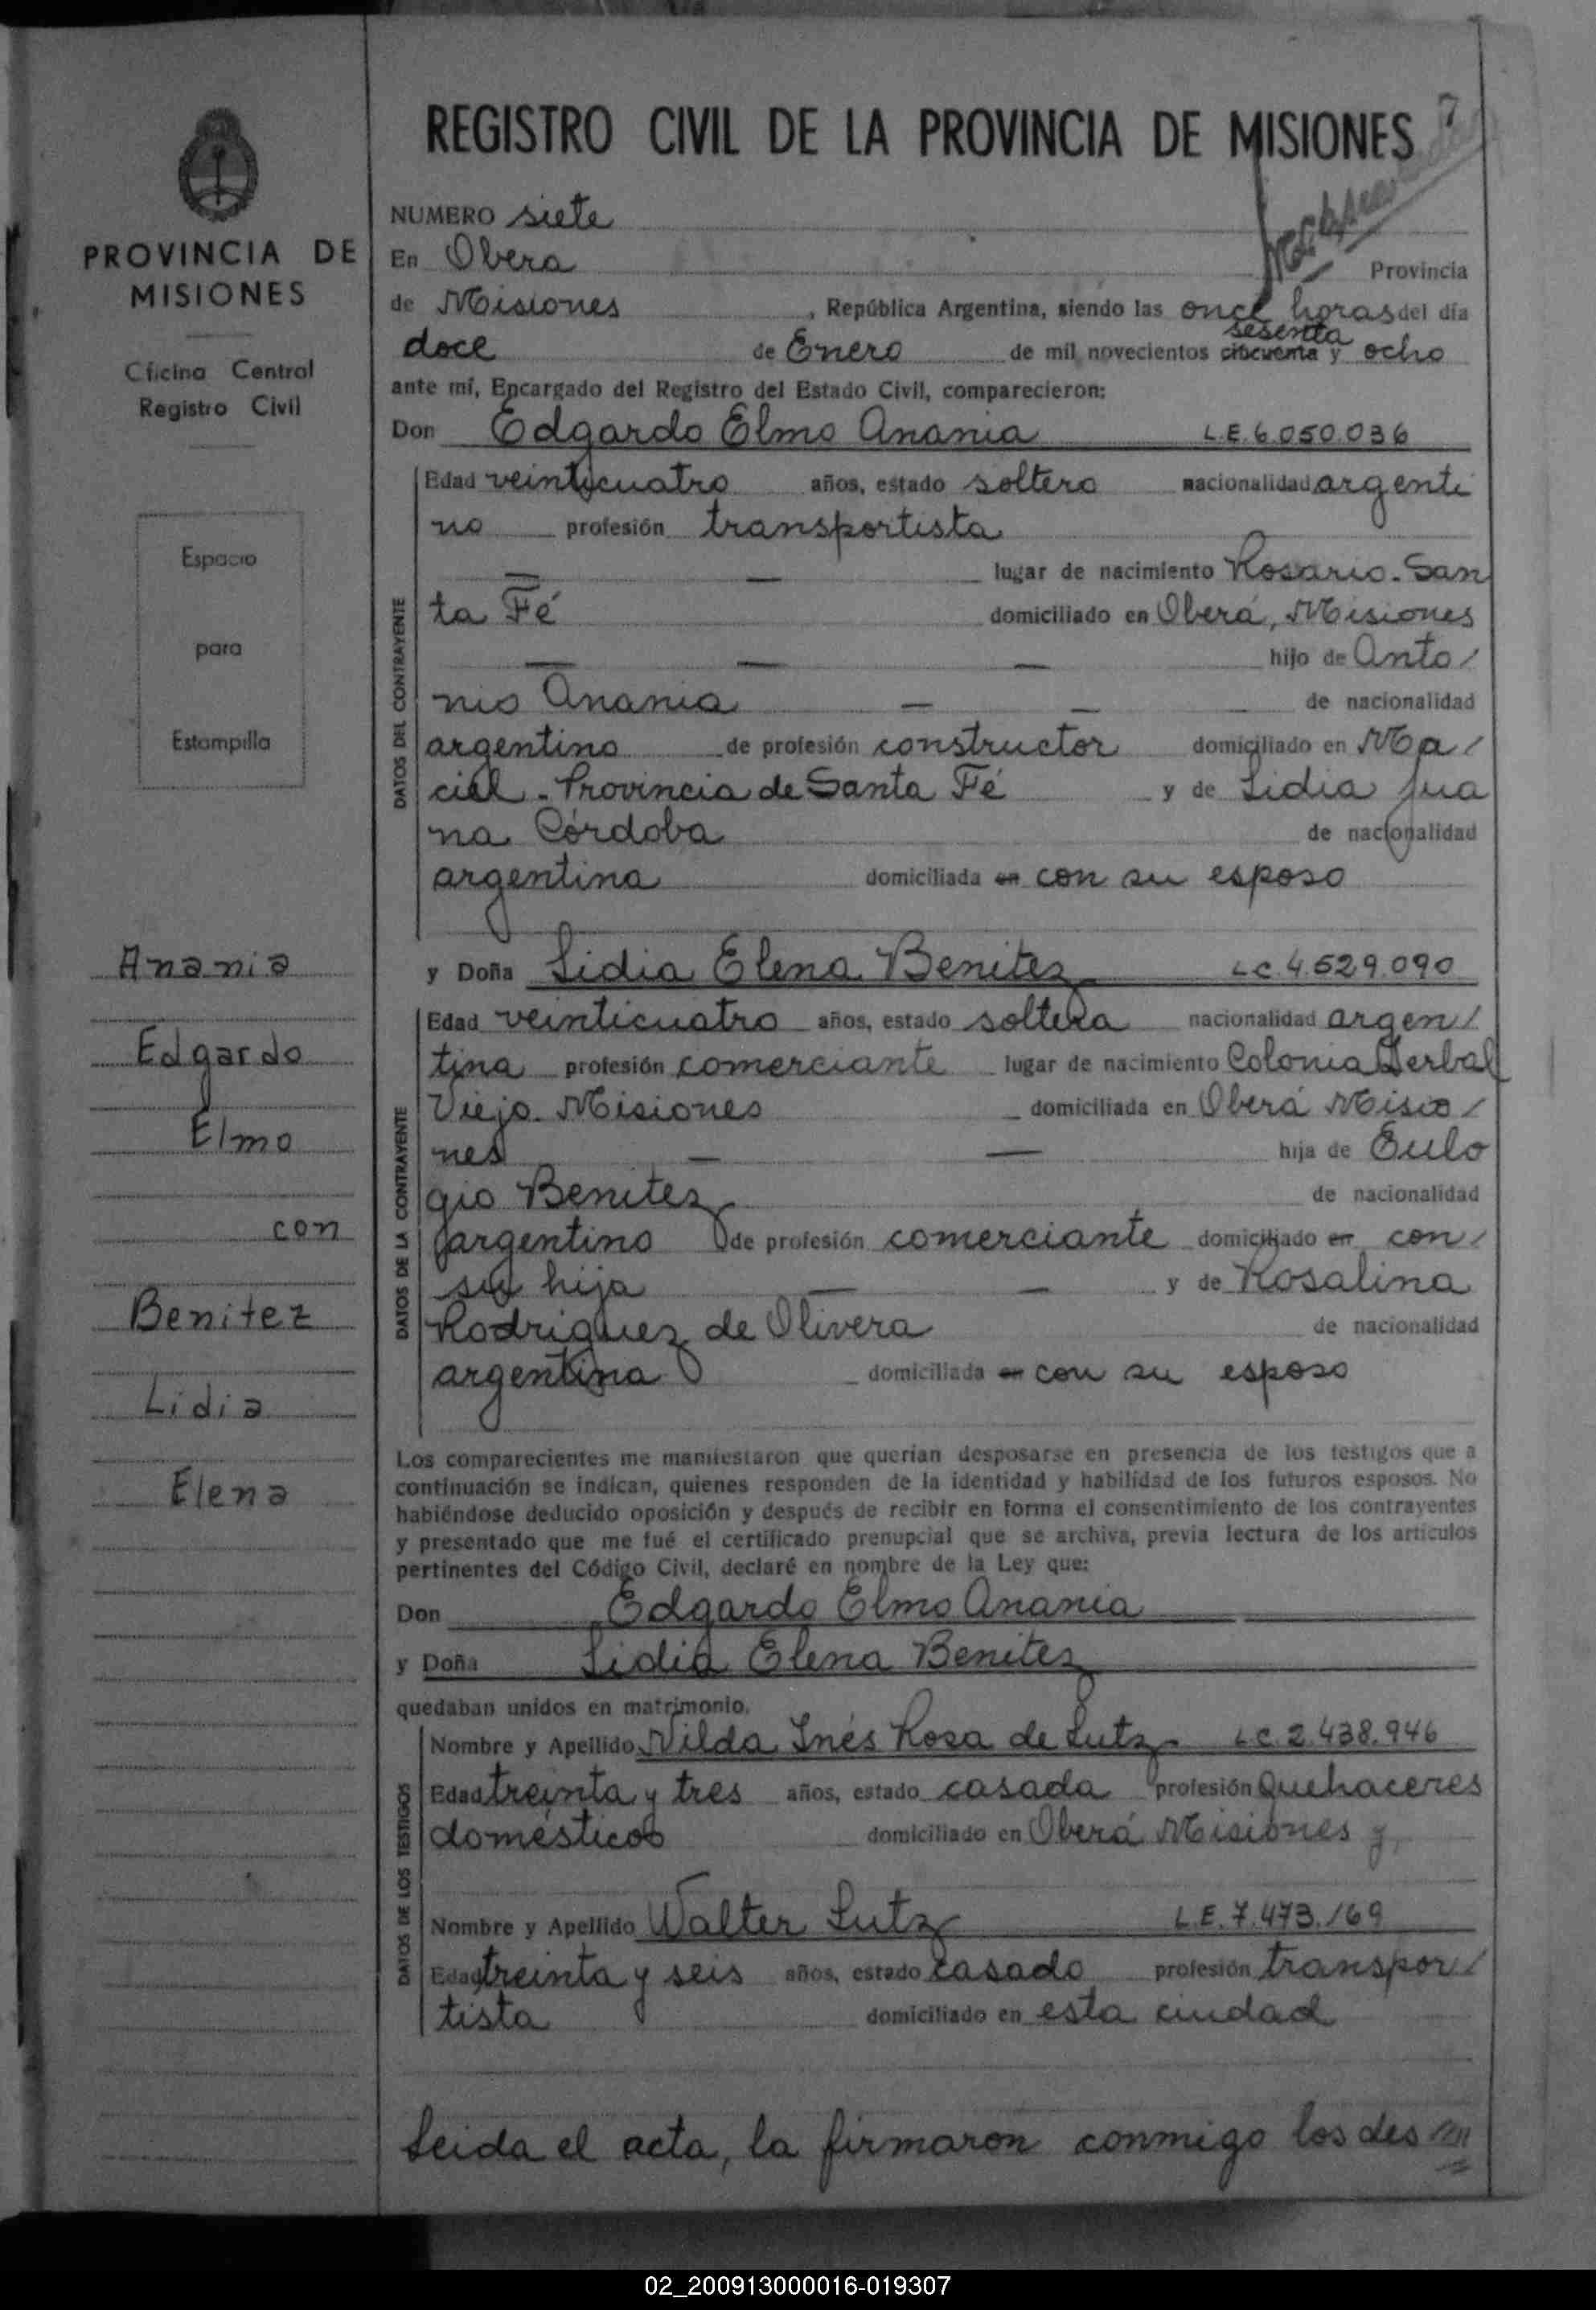 REGISTRO CIVIL DE LA PROVINCIA DE MISIONES
7
PROVINCIA DE
MISIONES
Oficina Central
Registro Civil
Espacio
para
Estampilla
Anania
Edgardo
Elmo
con
Benitez
Lidia
Elena
NUMERO siete
En Obera Provincia
de Misiones, República Argentina, siendo las once horas del día
sesenta
doce de Enero de mil novecientos cincuenta y ocho
ante mí, Encargado del Registro del Estado Civil, comparecieron:
Don Edgardo Elmo Anania L.E. 6.050.036
DATOS DEL CONTRAYENTE
Edad veinticuatro años, estado soltero nacionalidad argenti
no profesión transportista
— — lugar de nacimiento Rosario. San
ta Fé domiciliado en Oberá, Misiones
— — — hijo de Anto/
nio Anania — — de nacionalidad
argentino de profesión constructor domiciliado en Ma/
ciel - Provincia de Santa Fé y de Lidia Jua
na Córdoba de nacionalidad
argentina domiciliada en con su esposo
y Doña Lidia Elena Benitez L.C. 4.529.090
DATOS DE LA CONTRAYENTE
Edad veinticuatro años, estado soltera nacionalidad argen/
tina profesión comerciante lugar de nacimiento Colonia Yerbal
Viejo. Misiones domiciliada en Oberá Misio/
nes — — hija de Eulo
gio Benitez de nacionalidad
argentino de profesión comerciante domiciliado en con/
su hija — — y de Rosalina
Rodriguez de Olivera de nacionalidad
argentina domiciliada en con su esposo
Los comparecientes me manifestaron que querían desposarse en presencia de los testigos que a
continuación se indican, quienes responden de la identidad y habilidad de los futuros esposos. No
habiéndose deducido oposición y después de recibir en forma el consentimiento de los contrayentes
y presentado que me fué el certificado prenupcial que se archiva, previa lectura de los artículos
pertinentes del Código Civil, declaré en nombre de la Ley que:
Don Edgardo Elmo Anania
y Doña Lidia Elena Benitez
quedaban unidos en matrimonio.
DATOS DE LOS TESTIGOS
Nombre y Apellido Nilda Inés Rosa de Lutz L.C. 2.438.946
Edad treinta y tres años, estado casada profesión Quehaceres
domésticos domiciliado en Oberá Misiones y
Nombre y Apellido Walter Lutz L.E. 7.473.169
Edad treinta y seis años, estado casado profesión transpor/
tista domiciliado en esta ciudad
Leida el acta, la firmaron conmigo los des
02_200913000016-019307